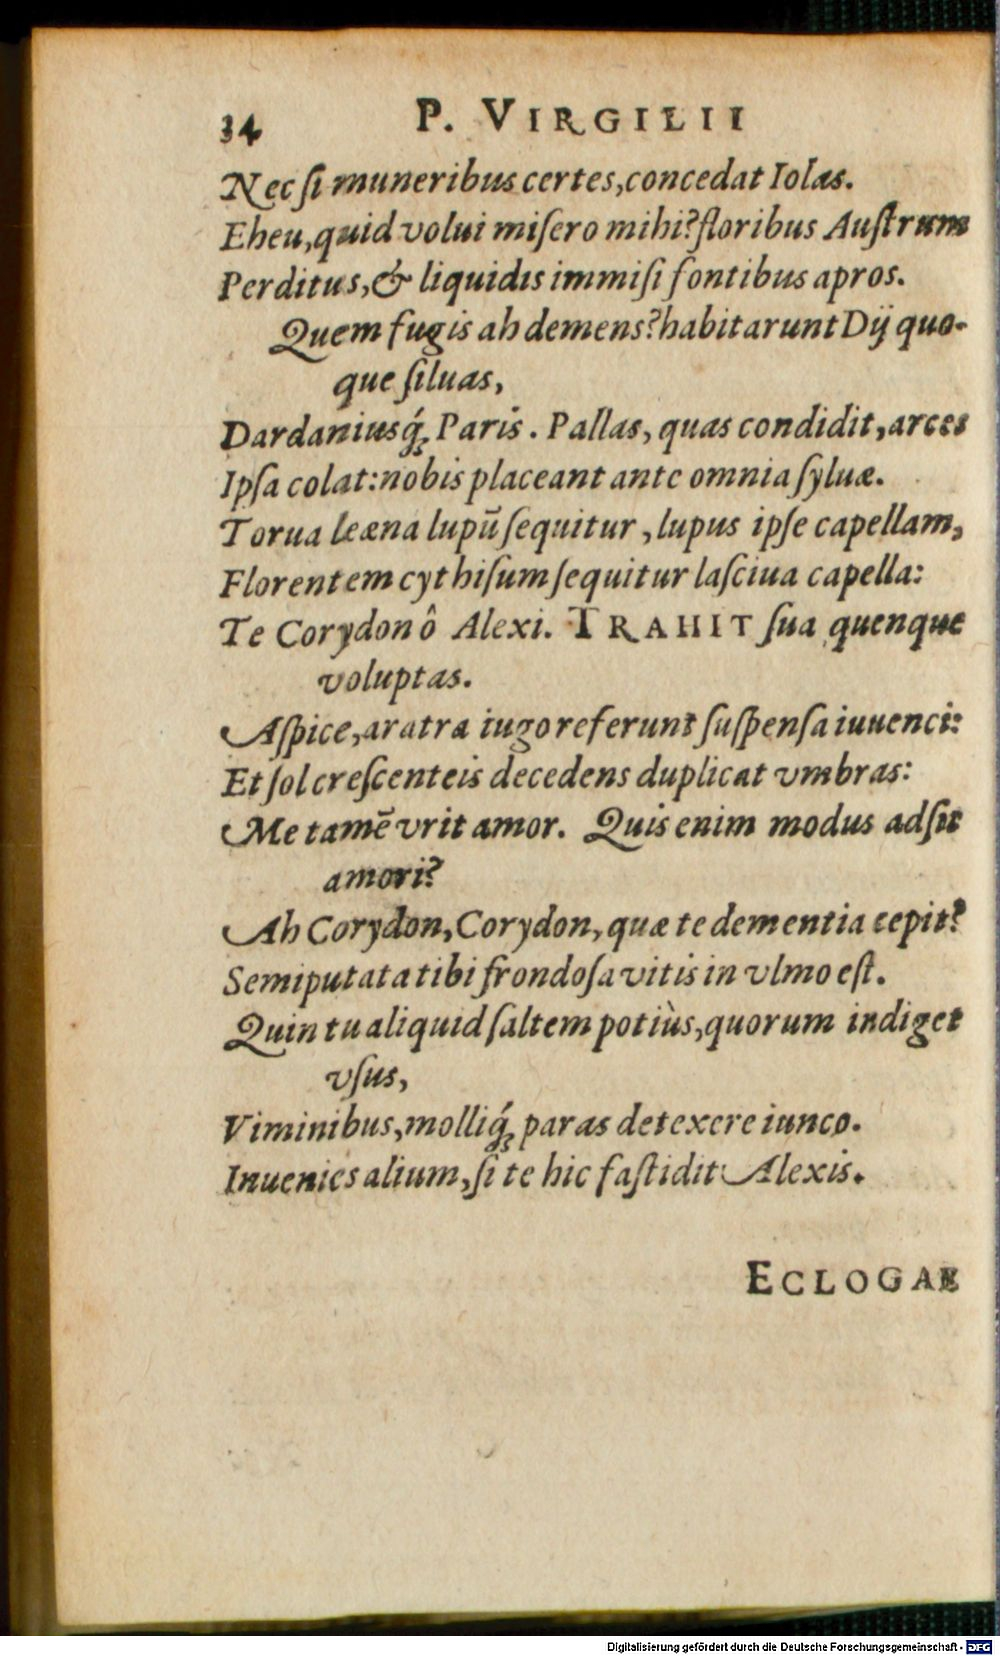 34 P. VIRGILII
Nec ſi muneribus certes, concedat Iolas.
Eheu, quid volui miſero mihi? floribus Auſtrum
Perditus, & liquidis immiſi fontibus apros.
Quem fugis ah demens? habitarunt Dij quo-
que ſiluas,
Dardaniusq́; Paris. Pallas, quas condidit, arces
Ipſa colat: nobis placeant ante omnia ſyluæ.
Torua leæna lupũ ſequitur, lupus ipſe capellam,
Florentem cythiſum ſequitur laſciua capella:
Te Corydon ô Alexi. TRAHIT ſua quenque
voluptas.
Aſpice, aratra iugo referunt ſuſpenſa iuuenci:
Et ſol creſcenteis decedens duplicat vmbras:
Me tamẽ vrit amor. Quis enim modus adſit
amori?
Ah Corydon, Corydon, quæ te dementia cepit?
Semiputata tibi frondoſa vitis in vlmo eſt.
Quin tu aliquid ſaltem potiùs, quorum indiget
vſus,
Viminibus, molliq́; paras detexere iunco.
Inuenies alium, ſi te hic faſtidit Alexis.
ECLOGAE
Digitalisierung gefördert durch die Deutsche Forschungsgemeinschaft - DFG